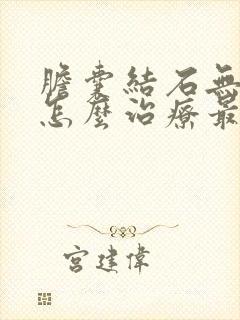 膽囊結石無
怎麼治療最
宮建偉